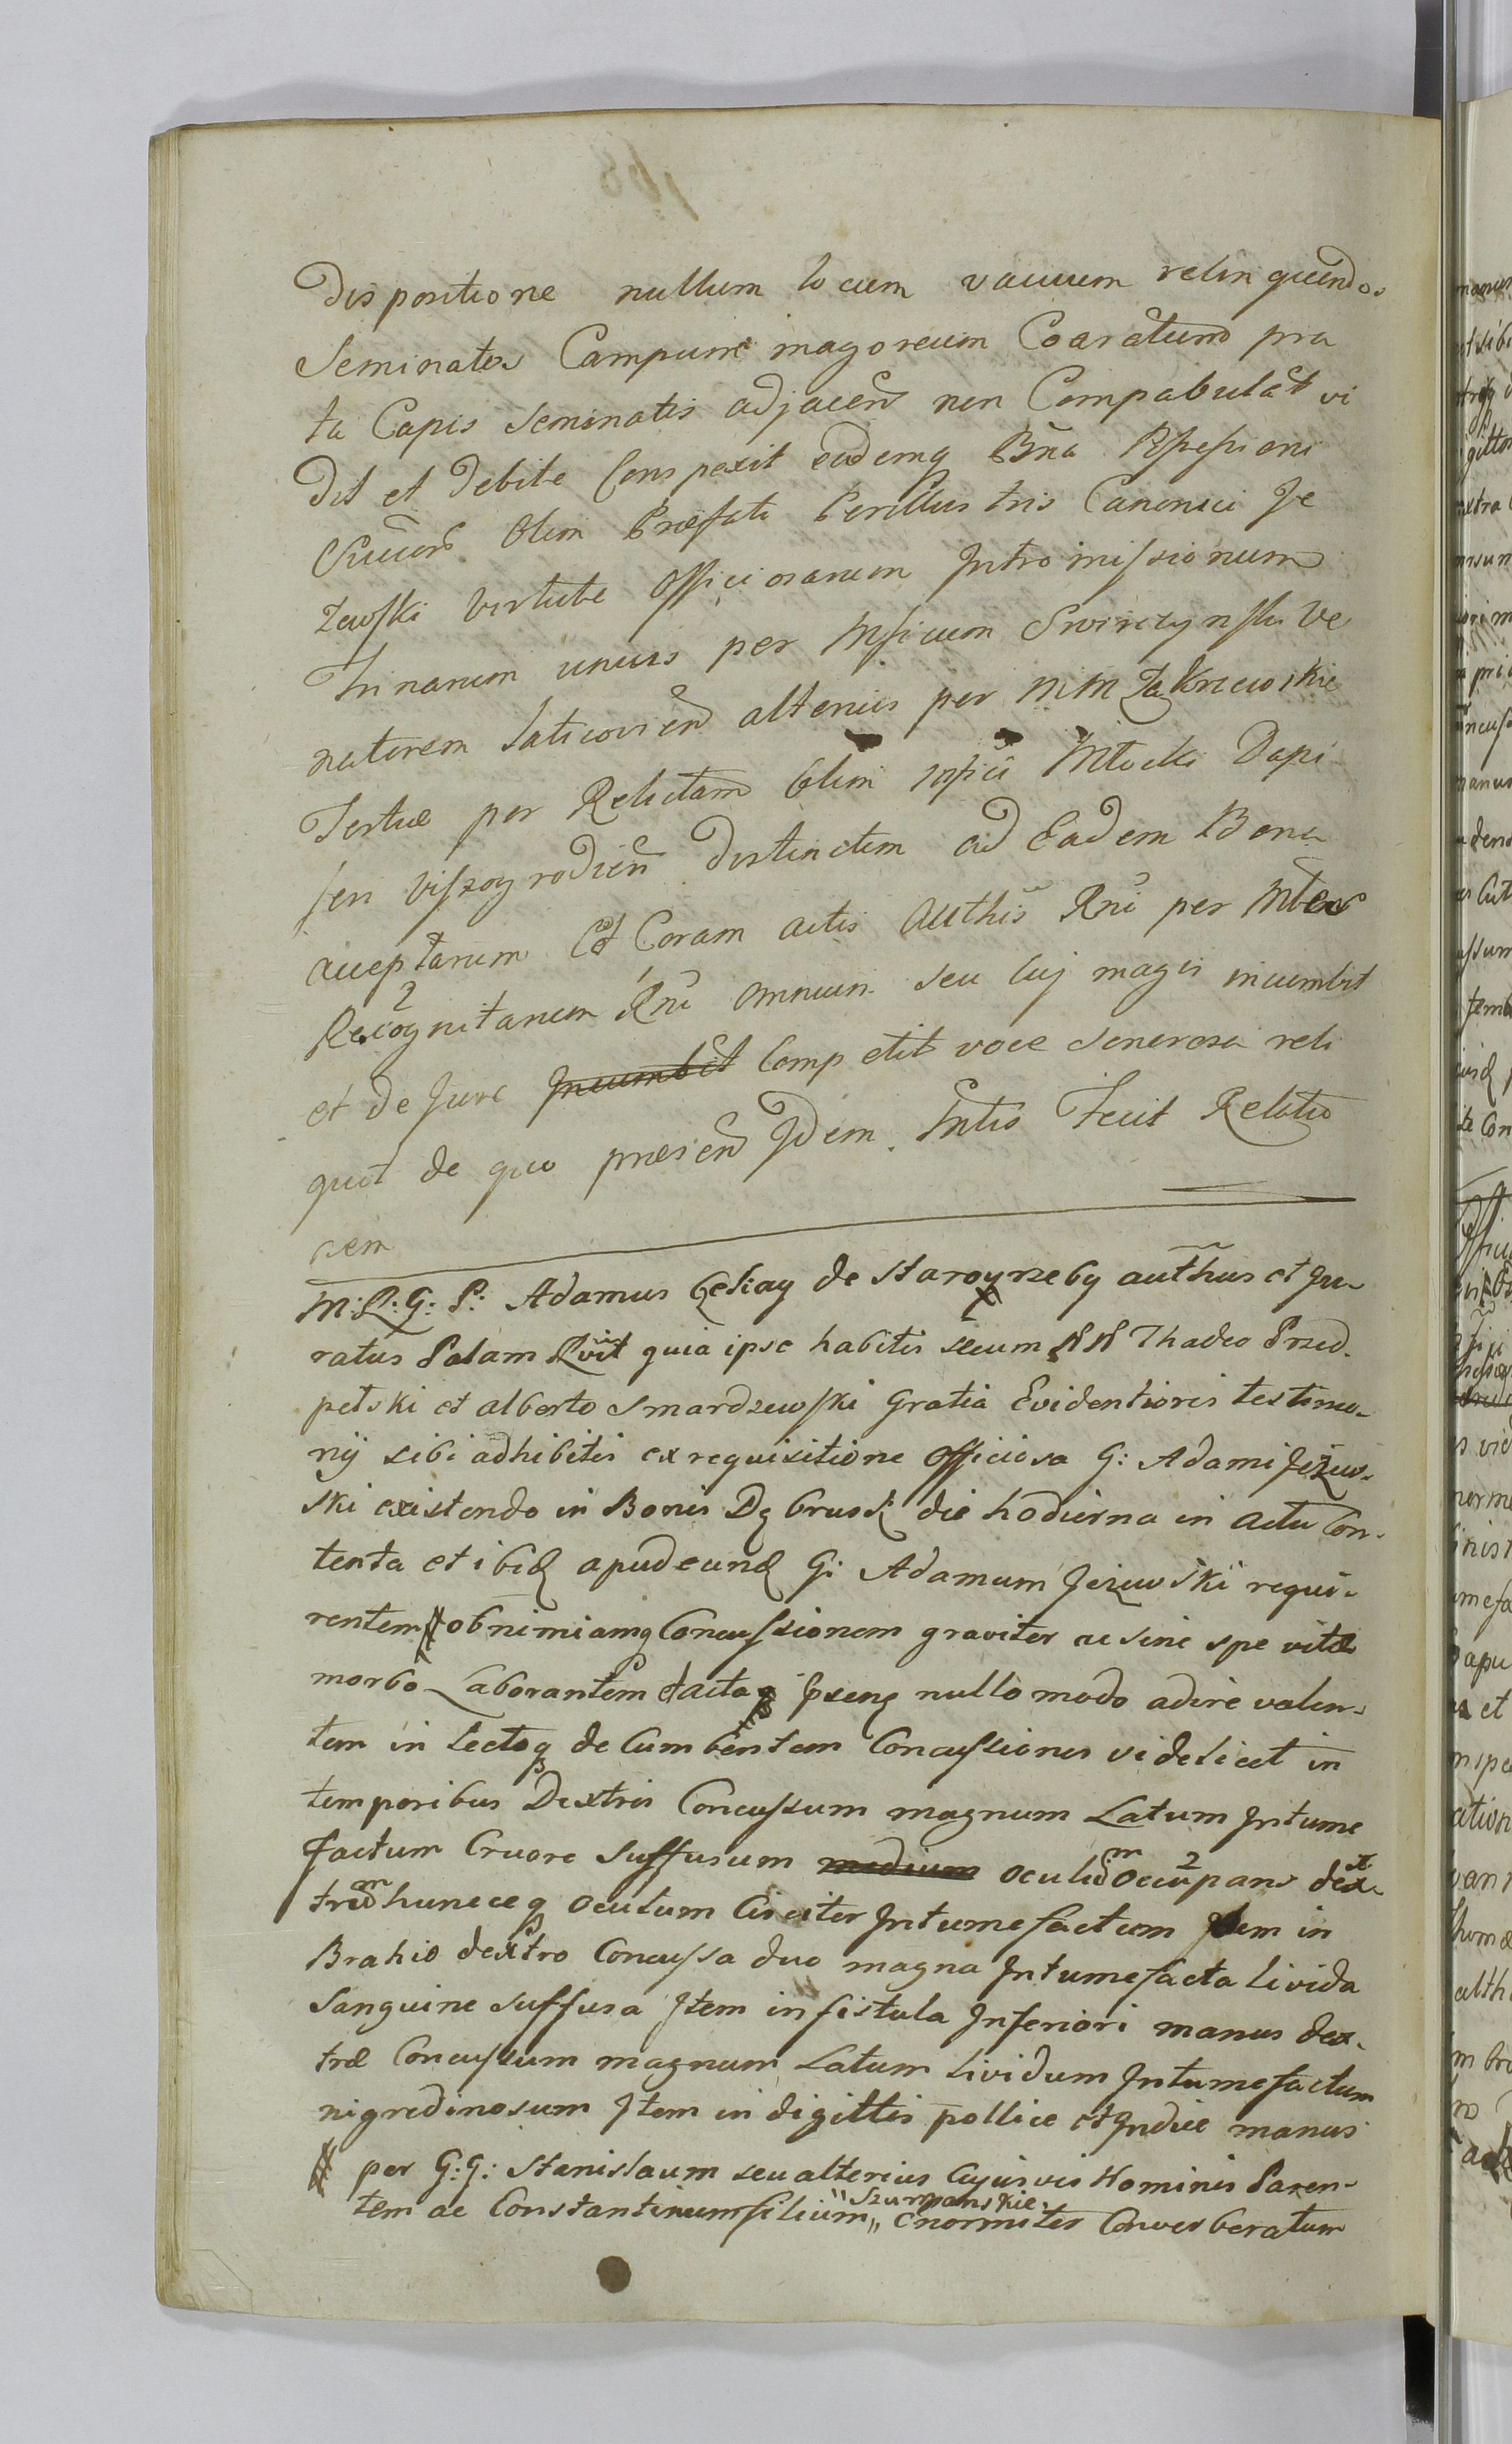 Dispositione nullum locum vacuum relinquendos
Seminatos Campum magoreum Coaratum pra
ta Capis Seminatis adjacen non Compabulat vi
dit et debite Conspexit eademq Bna Possessioni
Succor Olim Præfati Perillustris Canonici Je
zewski virtute Officiosarum Intromissionum
Trinarum unius per Msicum Swirczynski Ve
natorem Laticovien alterius per MM Zakrzewskie
Tertiæ per Relictam Olim Msici Mlocki Dapi
feri Viszogrodien distinctim ad Eadem Bona
acceptarum Et Coram actis Authis Rni per
Recognitarum Rni omnium seu cuj magis incumbit
et de Jure Incumbit Competit voce Sonerosa reli
quit de quo præsen Idem Mtis Fecit Relatio
nem
M: R: G: P: Adamus de Staroyrzeby authus et Ju-
ratus Palam Rvit quia ipse habitis secum NN Thadeo Przed-
petski et Alberto Smardzewski Gratia Evidentioris testimo-
nij sibi adhibitis ex requisitione Officiosa G: Adami Jezew-
ski existendo in Bonis Dq Brusk die hodierna in actu Con-
tenta et ibid apud eund G: Adamum Jezewski requi-
rentem # ob nimiamq Concussionem graviter ac sine spe vitæ
morbo Laborantem et actaq nullo modo adire valen-
tem in Lectoq de Cumbentem Concussiones videlicet in
temporibus Dextris Concussum magnum Latum Intume
factum Cruore Suffusum medium oculum Occupans dex-
trum hunceceq Oculum Circiter Intumefactum Item in
Brahio dextro Concussa duo magna Intumefacta livida
Sanguine suffusa Item in fistula Inferiori manus dex-
træ Concussum magnum Latum Lividum Intumefactum
nigredinosum Item in digittis pollice et Indice manus
# per G: G: Stanislaum seu alterius Cujusvis Hominis Paren-
tem ac Constantinum filium " Szumanskie " enormiter Converberatum